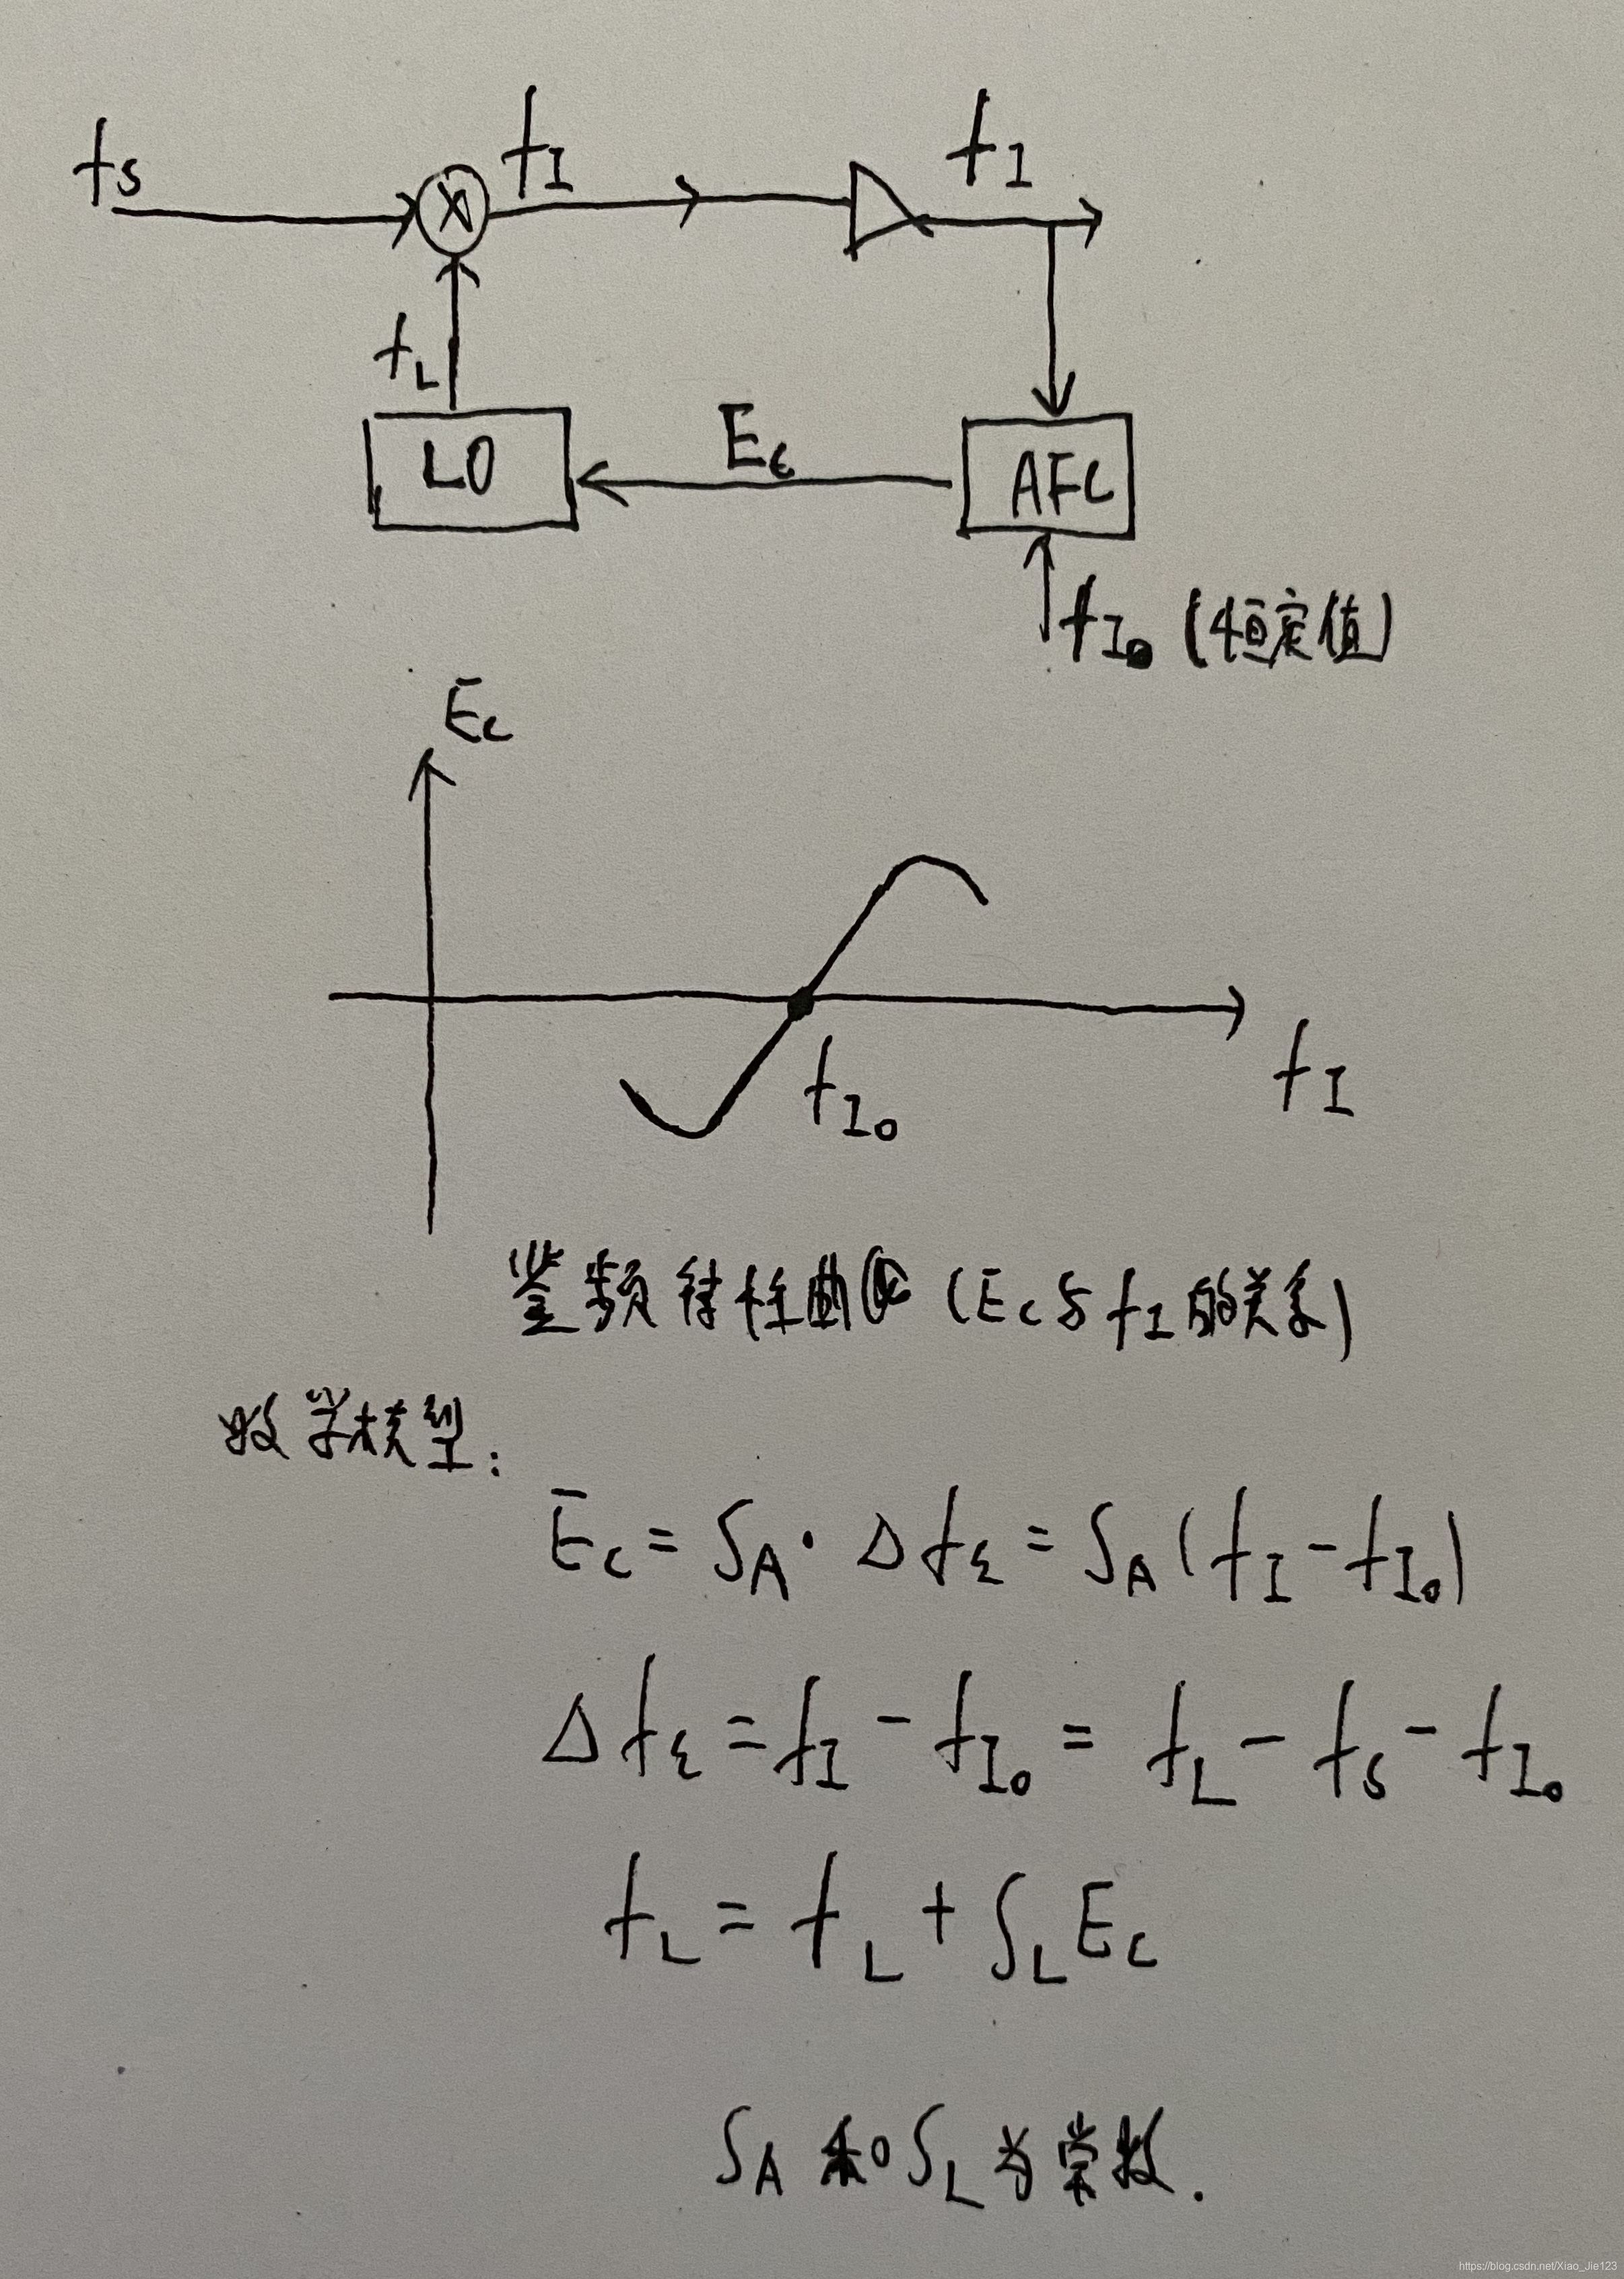 fs
fI
fI
fL
LO
Ec
AFC
fI0 (恒定值)
Ec
fI0
fI
鉴频特性曲 (Ec与fI的关系)
数学模型:
Ec = SA · Δfε = SA (fI - fI0)
Δfε = fI - fI0 = fL - fs - fI0
fL = fL + SL Ec
SA 和 SL 为常数.
https://blog.csdn.net/Xiao_Jie123